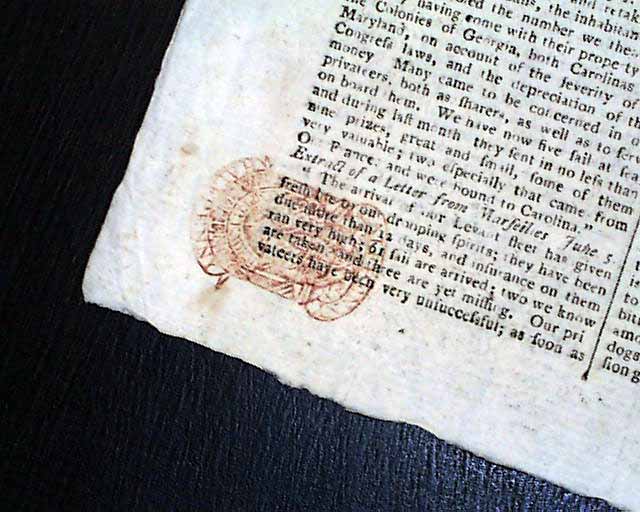 the number we
ms, the inhabitan
having come with their prope
the Colonies of Georgia, both Carolinas
Maryland, on account of the ſeverity of
Congreſs laws, and the depreciation of th
money Many came to be concerned in
privateers, both as ſharers, as well as to
on board them. We have now five ſail at ſea
and during laſt month they ſent in no leſs than
nine prizes, great and ſmall, ſome of them
very valuable; two eſpecially that came from
and were bound to Carolina."
Extract of a Letter from Marſeilles June 5.
The arrival of our Levant fleet has given
to our drooping ſpirits; they have been
due more than 12 days, and inſurance on them
ran very high; 61 ſail are arrived; two we know
are taken, and three are yet miſſing. Our pri
vateers have been very unſucceſsful; as ſoon as
bitu
amo
dogs
ſion g